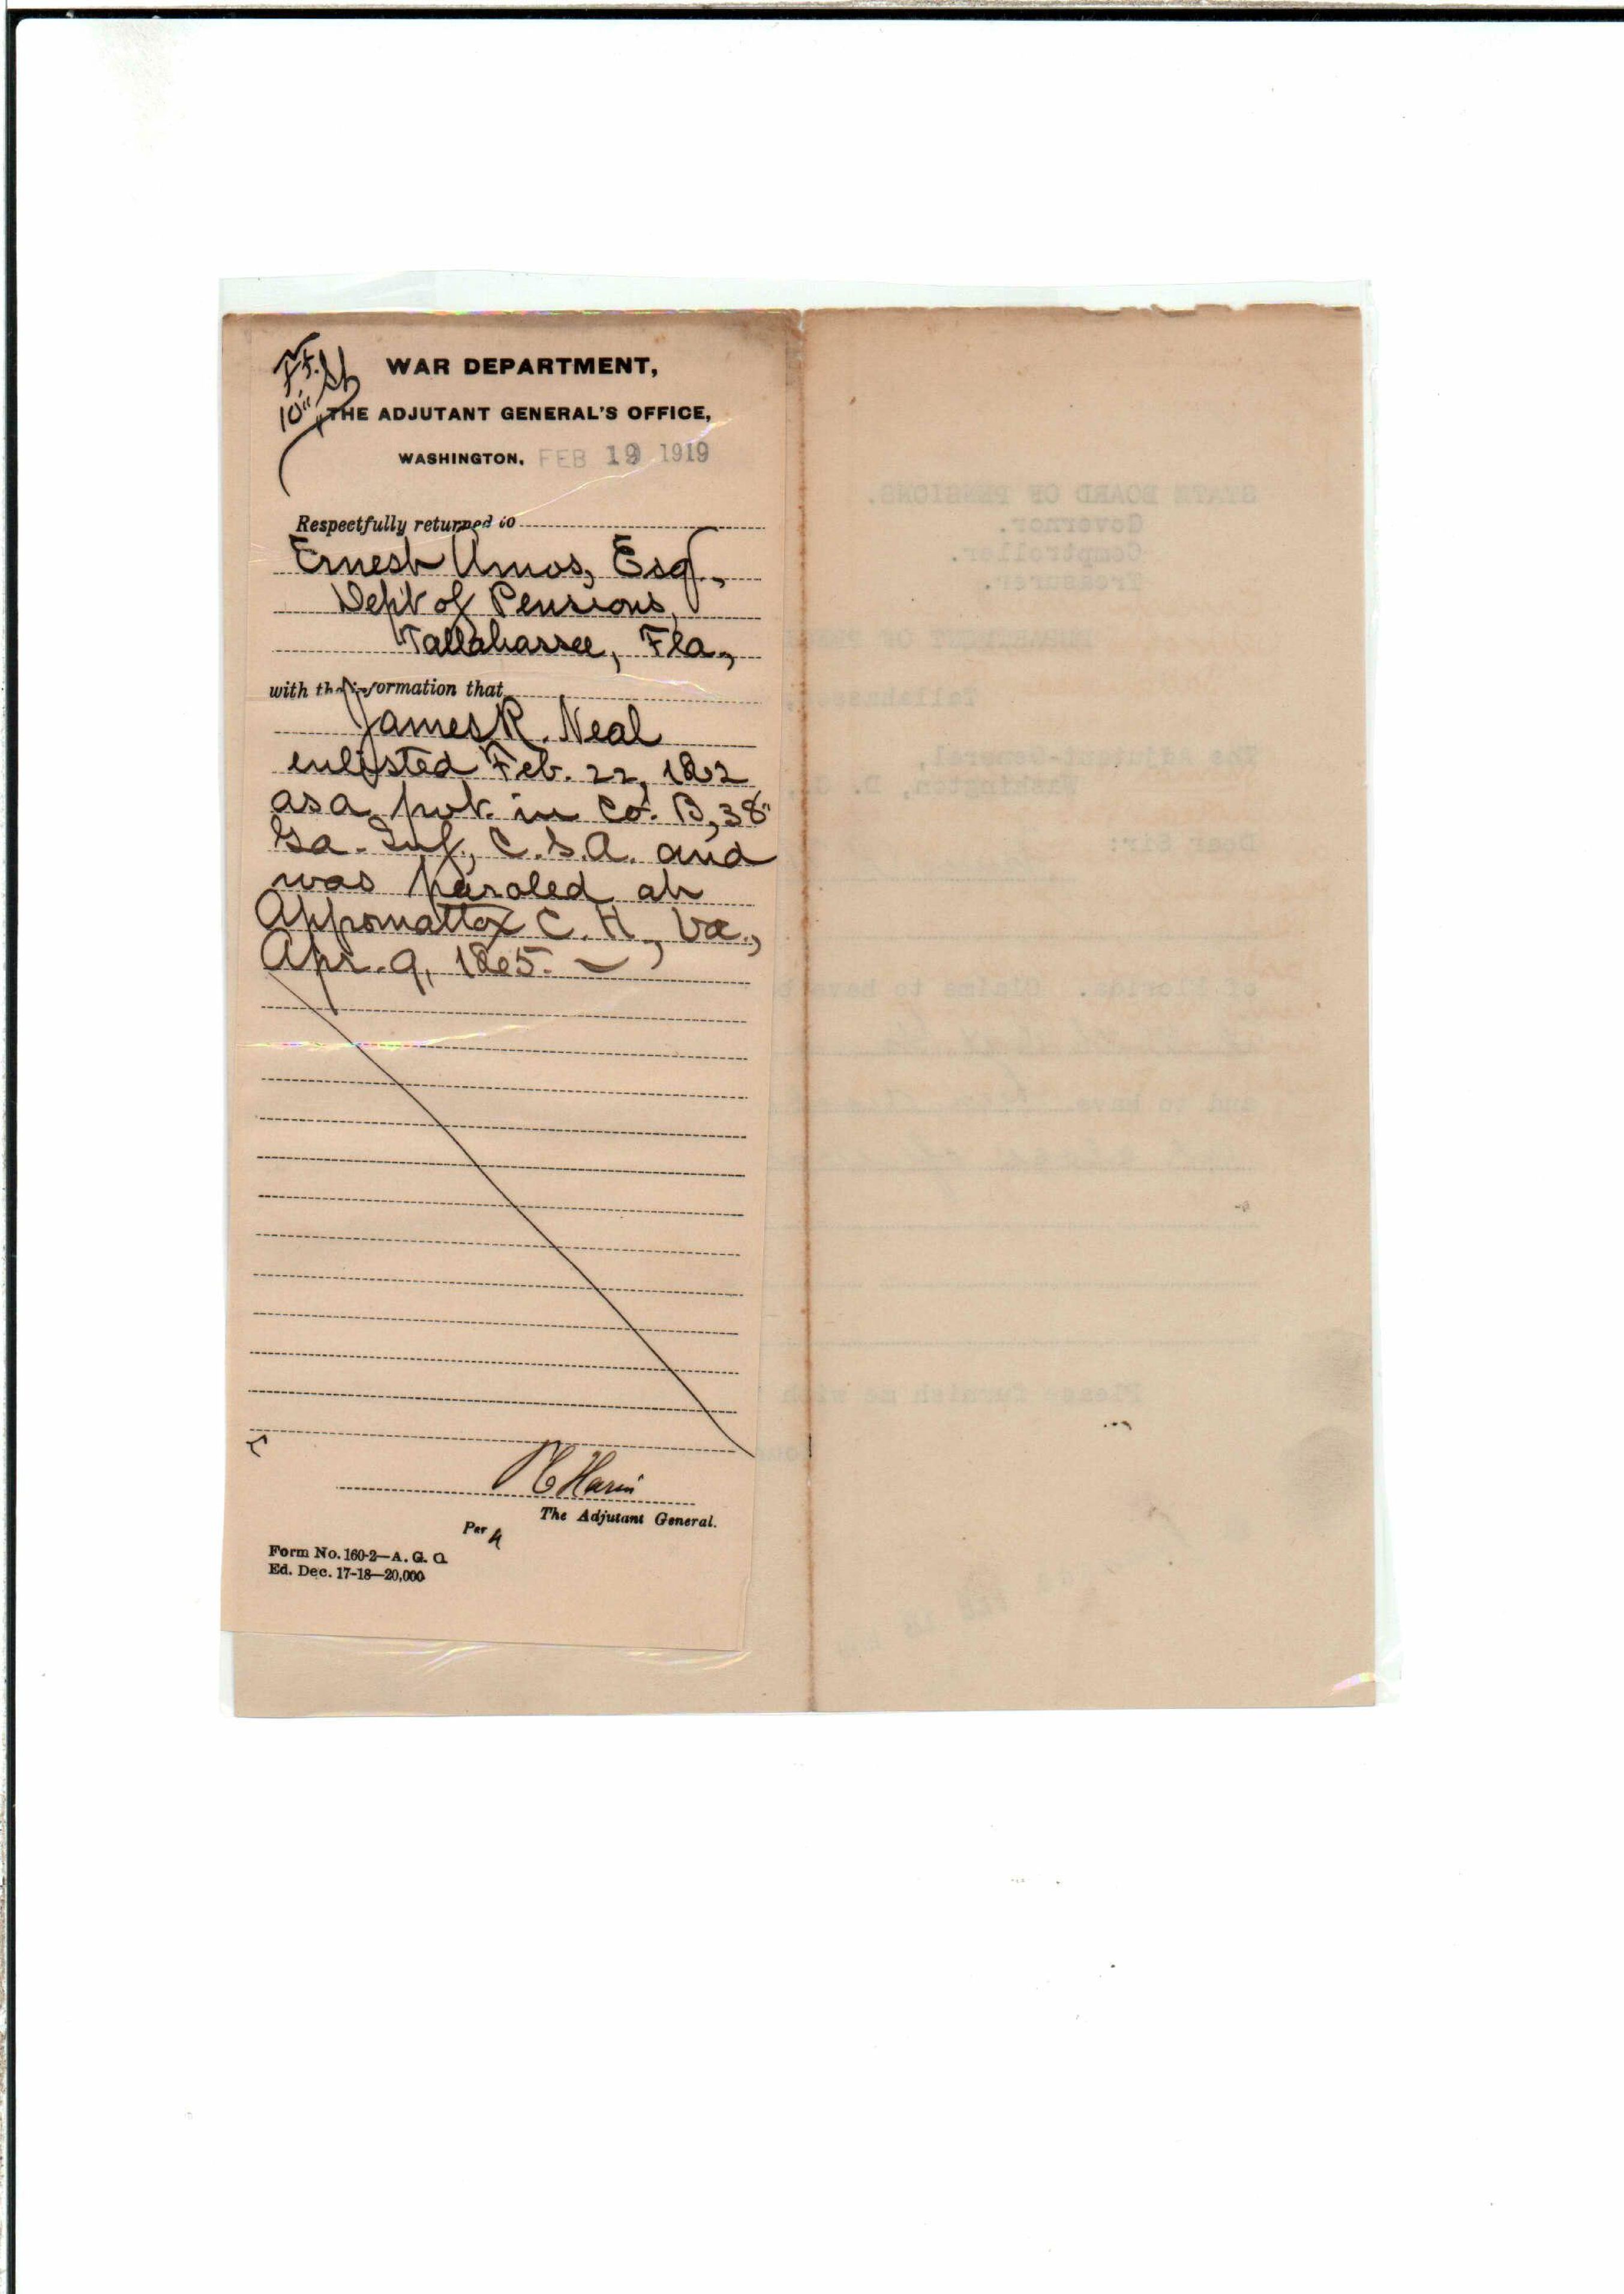 WAR DEPARTMENT,
THE ADJUTANT GENERAL'S OFFICE,
WASHINGTON, FEB 19 1919
Respectfully returned to
Ernest Amos, Esq.,
Dept of Pensions,
Tallahassee, Fla.,
with the information that
James R. Neal
enlisted Feb. 22, 1862
as a pvt. in Co. B, 38"
Ga. Inf., C.S.A. and
was paroled at
Appomattox C. H., Va.,
Apr. 9, 1865.
P C Harris
The Adjutant General.
Per
Form No. 160-2—A. G. O.
Ed. Dec. 17-18—20,000
STATE BOARD OF PENSIONS.
Governor.
Comptroller.
Treasurer.
DEPARTMENT OF
Tallahassee,
The Adjutant-General,
Washington, D. C.,
Dear Sir:
of Florida. Claims to have
and to have
Please furnish me with